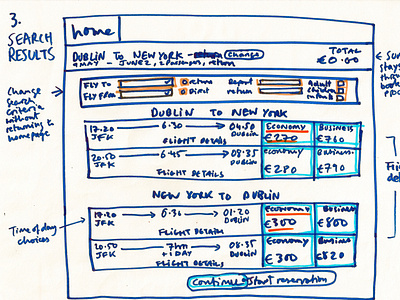 3.
SEARCH
RESULTS
home
DUBLIN TO NEW YORK - return change
9 MAY - JUNE 2, 2 passengers, return
TOTAL
€0.00
FLY TO
return
Depart
Adult
FLY FROM
Direct
return
children
infants
Change
search
criteria
without
returning to
homepage
DUBLIN TO NEW YORK
17.20
JFK
6.30
04:50
DUBLIN
FLIGHT DETAILS
ECONOMY
€270
BUSINESS
€760
20:50
JFK
6.45
08:35
DUBLIN
FLIGHT DETAILS
Economy
€280
Business
€790
NEW YORK TO DUBLIN
Time of day
choices
17.20
JFK
6.30
01:20
DUBLIN
FLIGHT DETAILS
Economy
€300
Business
€800
20:50
JFK
7hrs
+1 DAY
08:35
DUBLIN
FLIGHT DETAILS
Economy
€300
Business
€820
Continue
Start reservation